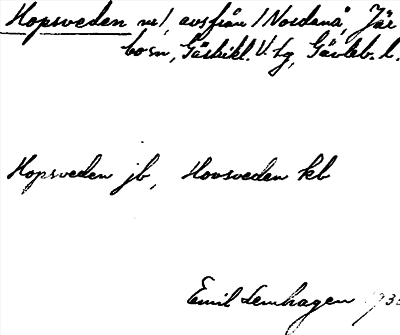 Hopsveden nr 1, avs från 1 Nordanå, Jär
bo sn, Gästrikl. V. tg, Gävleb. l.
Hopsveden jb, Hovsveden kb
Emil Lemhagen 193